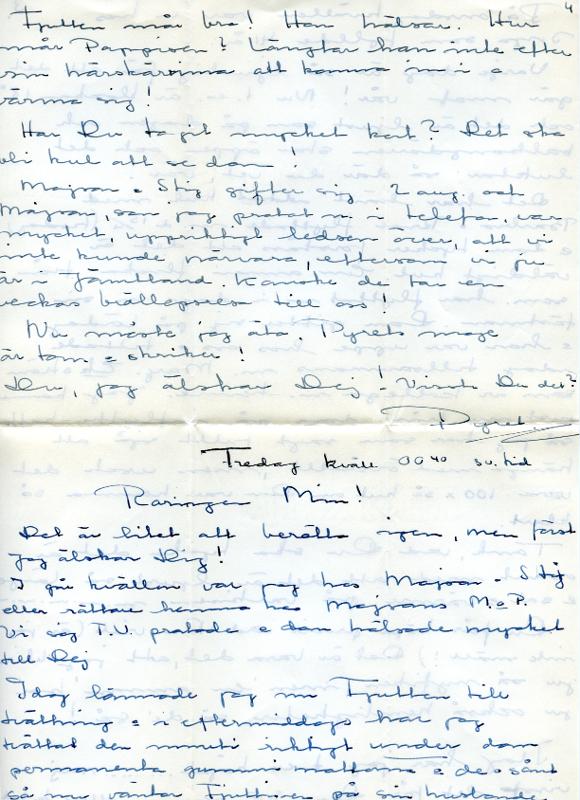 4
Fjutten mår bra! Han hälsar. Hur
mår Pappisen? Längtar han inte efter
sin härskarinna att komma in i o
värma sig!
Har Du tagit mycket kort? Det ska
bli kul att se dom!
Majvor o Stig gifter sig 2 aug. och
Majvor, som jag pratat m. i telefon, var
mycket, uppriktigt ledsen över, att vi
inte kunde närvara, eftersom vi ju
är i Jämtland. Kanske de tar en
veckas till oss!
Nu måste jag äta. Pyrets mage
är tom o skriker!
Du, jag älskar Dej! Visste Du det?
Pyret
Fredag kväll 00 40 sv. tid
Raringen Min!
Det är litet att berätta igen, men först
jag älskar Dig!
I går kvällen var jag hos Majvor o Stig
eller rättare hemma hos Majvors M. o P.
Vi såg T.V. pratade o dom hälsade mycket
till Dej
Idag lämnade jag in Fjutten till
tvättning o i eftermiddags har jag
tvättat den inuti riktigt under dom
permanenta gummimattorna o de sånt
så nu väntar Fjutten på sin